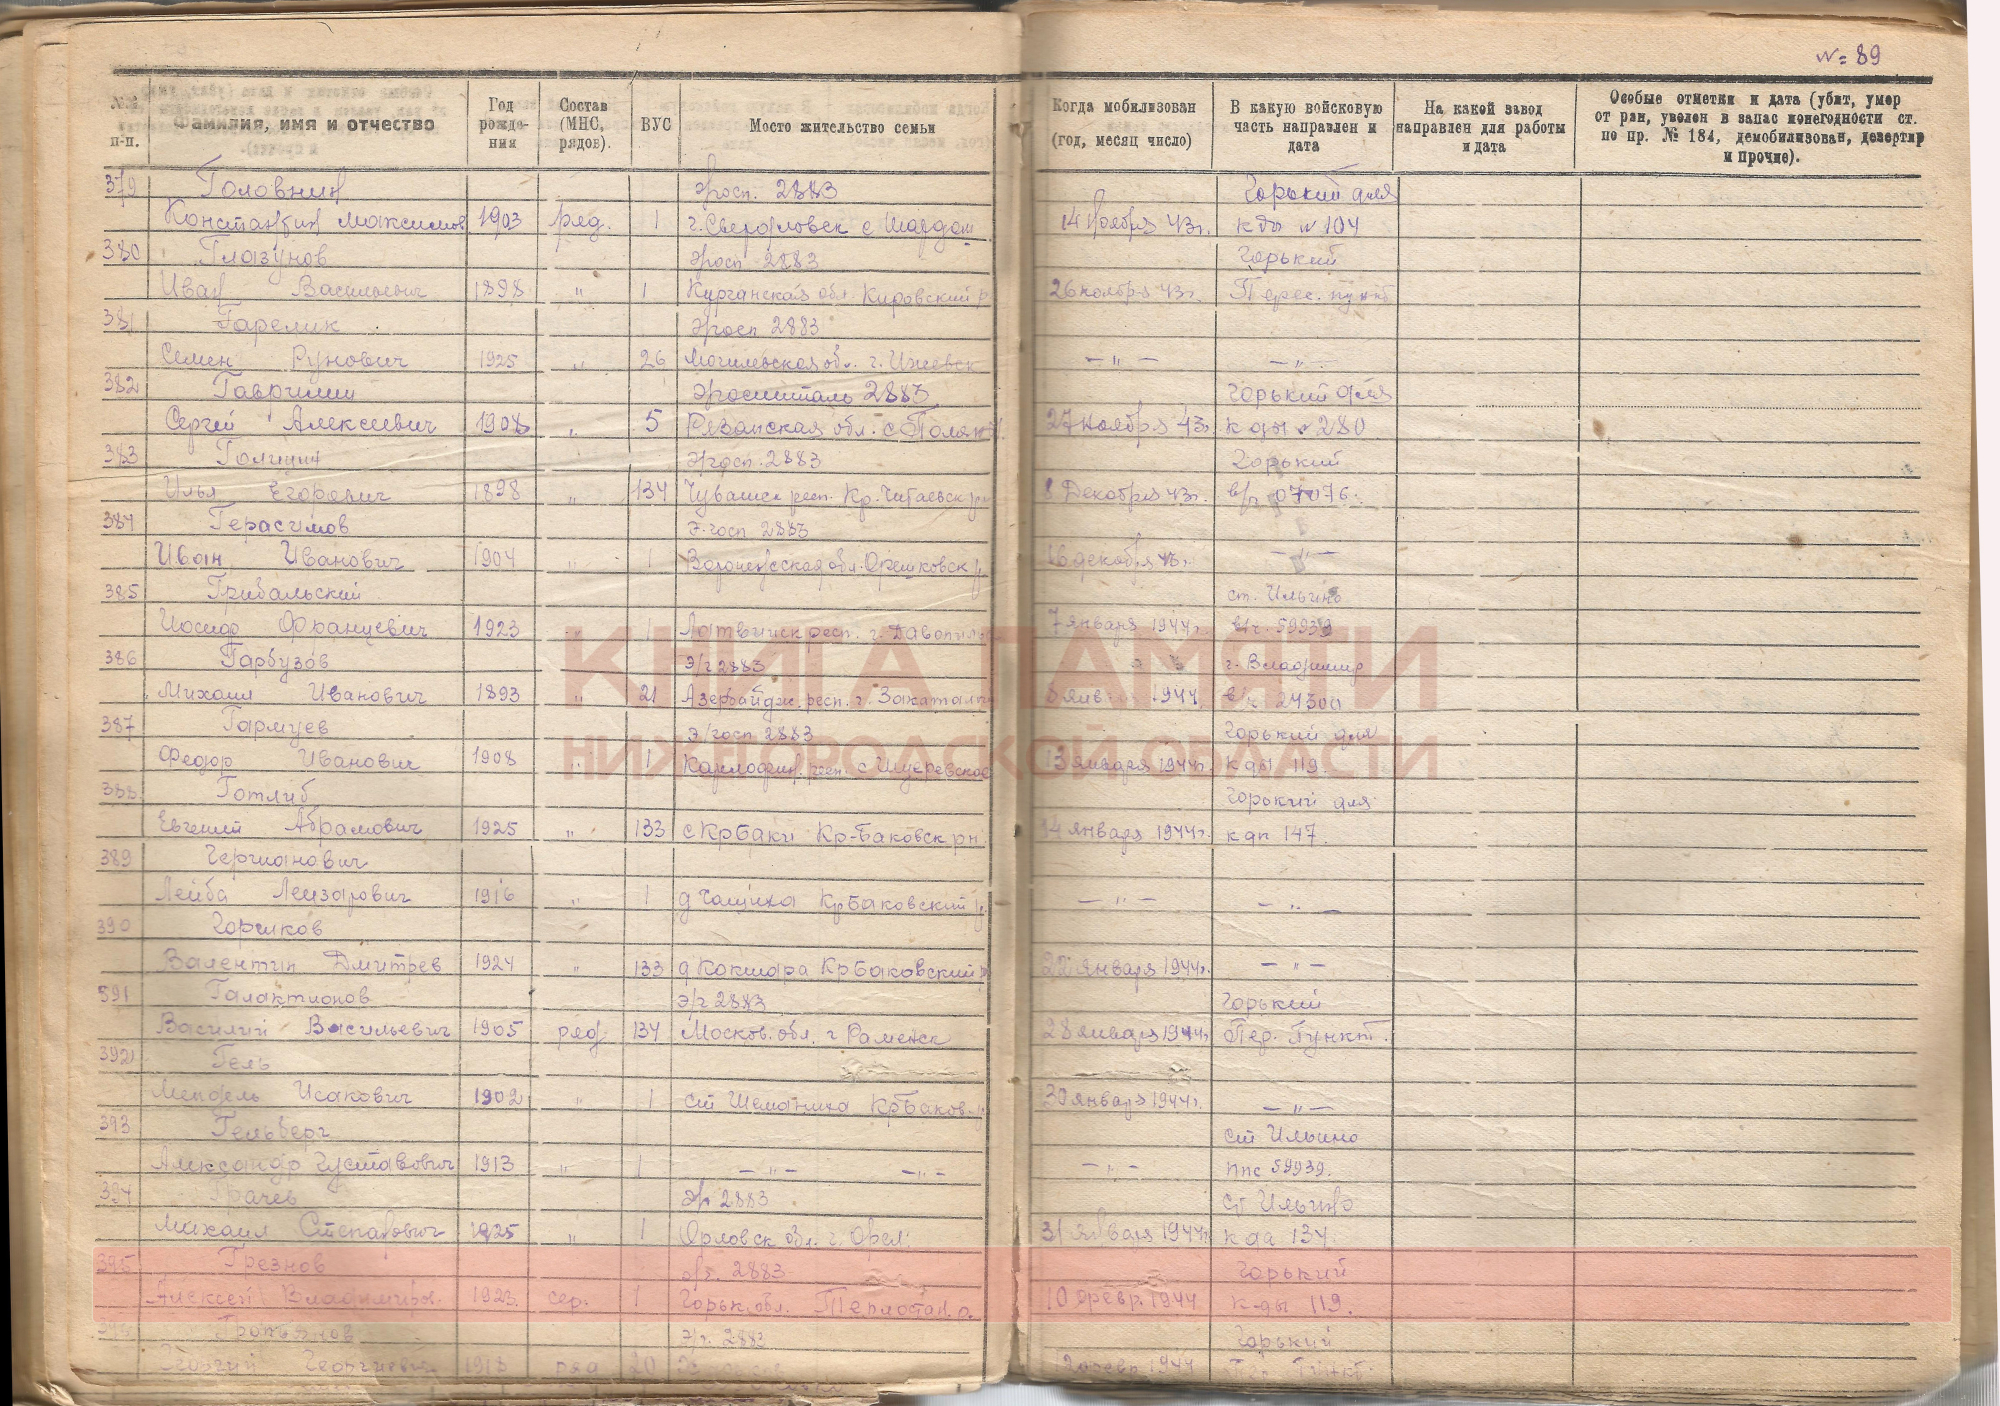 № 89
№№ п-п.
Фамилия, имя и отчество
Год рожде-ния
Состав (МНС, рядов).
ВУС
Место жительство семьи
Когда мобилизован (год, месяц число)
В какую войсковую часть направлен и дата
На какой завод направлен для работы и дата
Особые отметки и дата (убит, умер от ран, уволен в запас по негодности ст. по пр. № 184, демобилизован, дезертир и прочие).
379 Головнин Эгосп. 2883 Горький для
Константин Максимов 1903 ряд. 1 г. Свердловск с 14 Ноября 43г. кды № 104
380 Глазунов Эгосп 2883 Горький
Иван Васильевич 1898 " 1 Курганская обл. Кировский р 26 ноября 43г. Перес. пункт
381 Гарелик Эгосп 2883
Семен Рунович 1925 " 26 Могилевская обл. г. Ижевск — " — — " —
382 Гаврилин Эгоспиталь 2883 Горький для
Сергей Алексеевич 1908 " 5 Рязанская обл. с Поляны 27 Ноября 43г. к ды № 280
383 Голицин Эгосп. 2883 Горький
Илья Егорович 1898 " 134 Чувашск респ. Кр. Читаевск рн 8 Декабря 43г. в/ч 07076.
384 Герасимов Э. госп 2883
Иван Иванович 1904 " 1 Воронежская обл. 16 декабря 43г. — " —
385 Грибальский ст. Ильино
Иосиф Францевич 1923 " 1 Латвийск респ. г. 7 января 1944г. в/ч. 59939
386 Гарбузов Э/г 2883 г. Владимир
Михаил Иванович 1893 " 21 Азербайдж. респ. г. Закаталы 8 янв 1944 в/ч 24300
387 Гармуев Э/госп 2883 Горький для
Федор Иванович 1908 " 1 13 января 1944г. к ды 119.
388 Готлиб Горький для
Евгений Абрамович 1925 " 133 с Кр Баки Кр-Баковск рн. 14 января 1944г. к дп 147.
389 Герцианович
Лейба Лейзарович 1916 " 1 д Чащиха Кр Баковский р. — " — — " —
390 Горшков
Валентин Дмитрев 1924 " 133 д Кокшара Кр Баковский 22 января 1944г. — " —
391 Галактионов Э/г 2883 Горький
Василий Васильевич 1905 ряд 134 Москов. обл. г Раменск 28 января 1944г. Пер. Пункт.
392 Гель
Мендель Исакович 1902 " 1 ст Шеманиха Кр Баков. 30 января 1944г. — " —
393 Гельберг ст Ильино
Александр Густавович 1913 " 1 — " — — " — — " — ппс 59939.
394 Грачев Э/г 2883 ст Ильино
Михаил Степанович 1925 " 1 Орловск обл. г. Орел. 31 января 1944г. к да 134.
395 Грезнов 2883 Горький
Алексей Владимиров. 1923. сер. 1 Горьк. обл. Теплостан. 10 февр. 1944 к-ды 119.
Э/г. 2883 Горький
Георгий Георгиевич 1913 ряд 20 12 февр 1944 Пер. Пункт.
КНИГА ПАМЯТИ
НИЖЕГОРОДСКОЙ ОБЛАСТИ